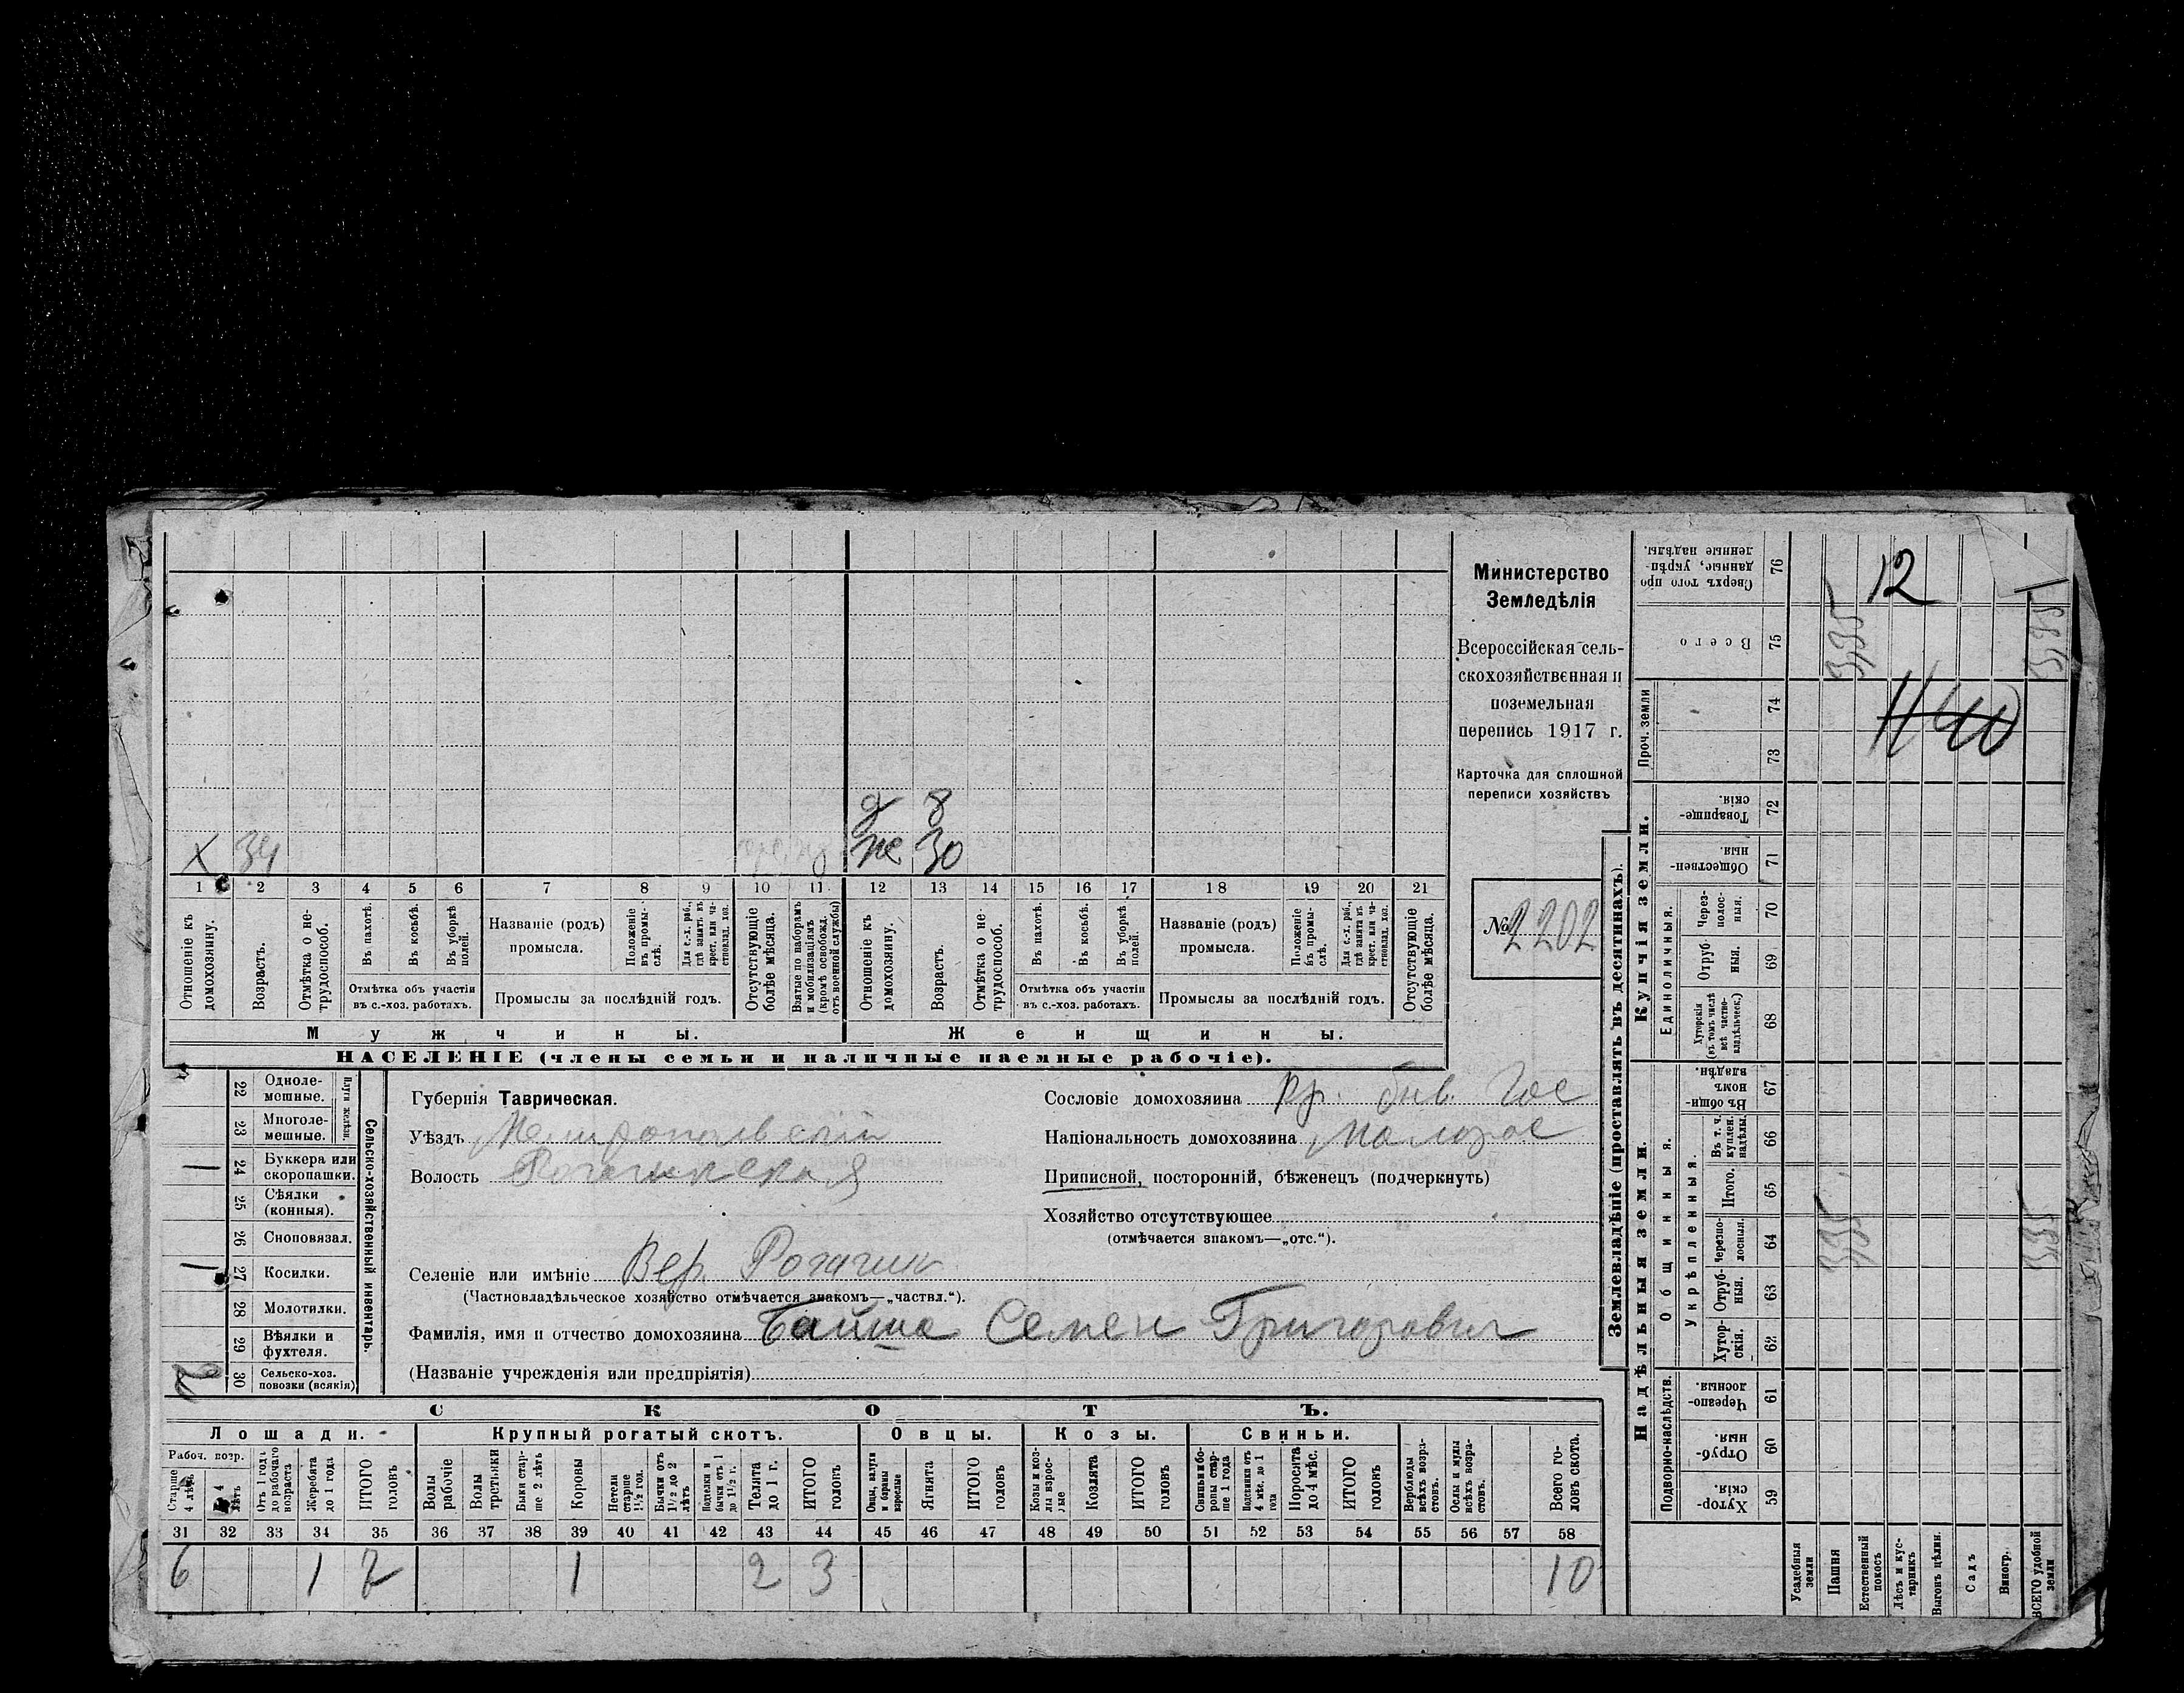 Министерство
Земледѣлія
Всероссійская сель-
скохозяйственная и
поземельная
перепись 1917 г.
Карточка для сплошной
переписи хозяйствъ
№ 2202
д 8
х 34 же 30
1 2 3 4 5 6 7 8 9 10 11 12 13 14 15 16 17 18 19 20 21
Отношеніе къ домохозяину.
Возрастъ.
Отмѣтка о не-трудоспособ.
Въ пахотѣ.
Въ косьбѣ.
Въ уборкѣ полей.
Отмѣтка объ участіи
въ с.-хоз. работахъ.
Названіе (родъ)
промысла.
Положеніе въ промы-слѣ.
Для с.-х. раб., гдѣ занятъ въ крест. или ча-стновлад. хоз.
Промыслы за послѣдній годъ.
Отсутствующіе болѣе мѣсяца.
Взятые по наборамъ и мобилизаціямъ (кромѣ освобожд. отъ военной службы)
Отношеніе къ домохозяину.
Возрастъ.
Отмѣтка о не-трудоспособ.
Въ пахотѣ.
Въ косьбѣ.
Въ уборкѣ полей.
Отмѣтка объ участіи
въ с.-хоз. работахъ.
Названіе (родъ)
промысла.
Положеніе въ промы-слѣ.
Для с.-х. раб., гдѣ занята въ крест. или ча-стновлад. хоз.
Промыслы за послѣдній годъ.
Отсутствующіе болѣе мѣсяца.
Мужчины. Женщины.
НАСЕЛЕНІЕ (члены семьи и наличные наемные рабочіе).
Сельско-хозяйственный инвентарь.
Плуги желѣзн.
22 Одноле-мешные.
23 Многоле-мешные.
24 Буккера или скоропашки.
25 Сѣялки (конныя).
26 Сноповязал.
27 Косилки.
28 Молотилки.
29 Вѣялки и фухтеля.
30 Сельско-хоз. повозки (всякія)
Губернія Таврическая.
Уѣздъ Мелитопольскій
Волость Рогачикская
Селеніе или имѣніе Вер. Рогачик
(Частновладѣльческое хозяйство отмѣчается знакомъ—„частвл.“).
Фамилія, имя и отчество домохозяина Байша Семен Григорович
(Названіе учрежденія или предпріятія)
Сословіе домохозяина кр. быв. Гос
Національность домохозяина малорос
Приписной, посторонній, бѣженецъ (подчеркнуть)
Хозяйство отсутствующее
(отмѣчается знакомъ—„отс.“).
СКОТЪ.
Лошади. Крупный рогатый скотъ. Овцы. Козы. Свиньи.
Рабоч. возр.
Старше 4 лѣтъ
4 лѣтъ
Отъ 1 года до рабочаго возраста
Жеребята до 1 года
ИТОГО головъ
Волы рабочіе
Волы третьяки
Быки стар-ше 2 лѣтъ
Коровы
Нетели старше 1½ год.
Бычки отъ 1½ до 2 лѣтъ
Подтелки и бычки отъ 1 до 1½ г.
Телята до 1 г.
ИТОГО головъ
Овцы, валухи и бараны взрослые
Ягнята
ИТОГО головъ
Козы и коз-лы взрос-лые
Козлята
ИТОГО головъ
Свиньи и бо-ровы стар-ше 1 года
Подсвинки отъ 4 мѣс. до 1 года
Поросята до 4 мѣс.
ИТОГО головъ
Верблюды всѣхъ возра-стовъ.
Ослы и мулы всѣхъ возра-стовъ.
Всего го-ловъ скота.
31 32 33 34 35 36 37 38 39 40 41 42 43 44 45 46 47 48 49 50 51 52 53 54 55 56 57 58
6 1 7 1 2 3 10
Землевладѣніе (проставлять въ десятинахъ).
Надѣльныя земли. Купчія земли.
Подворно-наслѣдств.
Общинныя.
Укрѣпленныя.
Единоличныя.
Проч. земли
Хутор-скія. 59
Отруб-ныя. 60
Черезпо-лосныя. 61
Хутор-скія. 62
Отруб-ныя. 63
Черезпо-лосныя. 64
Итого. 65
Въ т. ч. куплен. надѣлы 66
Въ общи-номъ владѣн. 67
Хуторскія (въ томъ числѣ всѣ частно-владѣльческ.) 68
Отруб-ныя. 69
Через-полос-ныя. 70
Обществен-ныя 71
Товарище-скія. 72
73
74
Всего 75
Сверхъ того про-данные, укрѣп-ленные надѣлы. 76
12
Усадебныя земли
Пашня
Естественный покосъ
Лѣсъ и кус-тарникъ
Выгонъ цѣлин.
Садъ
Виногр.
ВСЕГО удобной земли